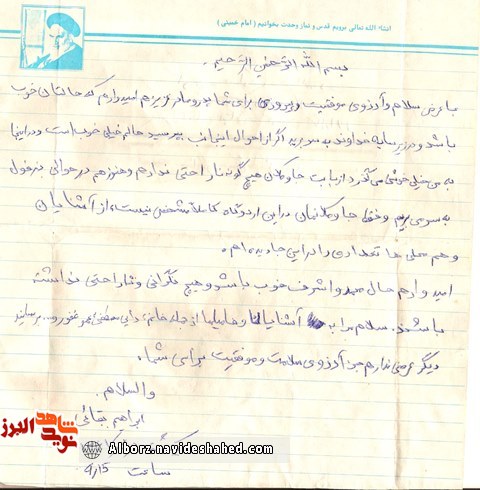 انشاء الله تعالی برویم قدس و نماز وحدت بخوانیم ( امام خمینی )
بسم الله الرحمن الرحیم.
با عرض سلام و آرزوی موفقیت و پیروزی برای شما پدر و مادر عزیزم امیدوارم که حالتان خوب
باشد و در زیر سایه خداوند به سر برید اگر از احوال اینجانب بپرسید حالم خیلی خوب است و در اینجا
به من خیلی خوش می‌گذرد از بابت جا و مکان هیچ گونه ناراحتی ندارم و هنوز هم در حوالی دزفول
به سر می‌بریم و فعلا جا و مکانمان در این اردوگاه کاملا مشخص نیست، از آشنایان
و هم محلی ها تعدادی را در این جا دیده ام.
امیدوارم حال و اشرف خوب باشد و هیچ نگرانی و ناراحتی نداشته
باشند. سلام مرا به آشنایان و فامیلها از جمله خانم، دائی مصطفی برسانید
دیگر عرضی ندارم جز آرزوی سلامت و موفقیت برای شما.
والسلام.
ابراهیم بقائی
ساعت ۹/۱۵
نوید شاهد البرز
Alborz.navideshahed.com